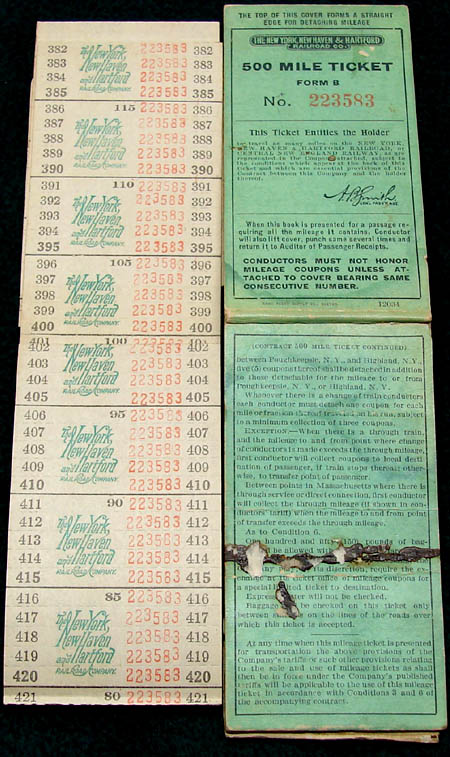 382 223583 382
383 The New York, 223583 383
384 New Haven 223583 384
and Hartford
385 RAILROAD COMPANY. 223583 385
386 115 223583 386
387 The New York, 223583 387
388 New Haven 223583 388
389 and Hartford 223583 389
390 RAILROAD COMPANY. 223583 390
391 110 223583 391
392 The New York, 223583 392
393 New Haven 223583 393
394 and Hartford 223583 394
395 RAILROAD COMPANY. 223583 395
396 105 223583 396
397 The New York, 223583 397
398 New Haven 223583 398
399 and Hartford 223583 399
400 RAILROAD COMPANY. 223583 400
401 100
The New York, 223583 402
403 New Haven 223583 403
404 and Hartford 223583 404
405 RAILROAD COMPANY. 223583 405
406 95 223583 406
407 The New York, 223583 407
408 New Haven 223583 408
409 and Hartford 223583 409
410 RAILROAD COMPANY. 223583 410
411 90 223583 411
412 The New York, 223583 412
413 New Haven 223583 413
414 and Hartford 223583 414
415 RAILROAD COMPANY. 223583 415
416 85 223583 416
417 The New York, 223583 417
418 New Haven 223583 418
419 and Hartford 223583 419
420 RAILROAD COMPANY. 223583 420
421 80 223583 421
THE TOP OF THIS COVER FORMS A STRAIGHT
EDGE FOR DETACHING MILEAGE
THE NEW YORK, NEW HAVEN & HARTFORD
RAILROAD CO.
500 MILE TICKET
FORM B
No. 223583
This Ticket Entitles the Holder
to travel as many miles on the NEW YORK,
NEW HAVEN & HARTFORD RAILROAD, or
CENTRAL NEW ENGLAND RAILWAY, as are
represented in the Coupons attached, subject to
the conditions which appear at the back of this
ticket and which are essential provisions of the
Contract between this Company and the holder
thereof.
A.B. Smith
When this book is presented for a passage re-
quiring all the mileage it contains, Conductor
will also lift cover, punch same several times and
return it to Auditor of Passenger Receipts.
CONDUCTORS MUST NOT HONOR
MILEAGE COUPONS UNLESS AT-
TACHED TO COVER BEARING SAME
CONSECUTIVE NUMBER.
12034
(CONTRACT 500 MILE TICKET CONTINUED)
between Poughkeepsie, N. Y., and Highland, N. Y.,
five (5) coupons thereof shall be detached in addition
to those detachable for the mileage to or from
Poughkeepsie, N. Y., or Highland, N. Y.
Whenever there is a change of train conductors
each conductor must detach one coupon for each
mile or fraction thereof traveled on his run, subject
to a minimum collection of three coupons.
EXCEPTION—When there is a through train,
and the mileage to and from point where change
of conductors is made exceeds the through mileage,
first conductor will collect coupons to hold desti-
nation of passenger, if train stops thereat; other-
wise, to transfer point of passenger.
Between points in Massachusetts where there is
through service or direct connection, first conductor
will collect the through mileage (if shown in con-
ductors' tariff) when the mileage to and from point
of transfer exceeds the through mileage.
As to Condition 6.
One hundred and fifty pounds of bag-
be allowed with
discretion, require the ex-
office of mileage coupons for
a special ticket to destination.
Express will not be checked.
Baggage be checked on this ticket only
between on the lines of the roads over
which this ticket is accepted.
At any time when this mileage ticket is presented
for transportation the above provisions of the
Company's tariffs or such other provisions relating
to the sale and use of mileage tickets as shall
then be in force under the Company's published
tariffs will be applicable to the use of this mileage
ticket in accordance with Conditions 3 and 6 of
the accompanying contract.